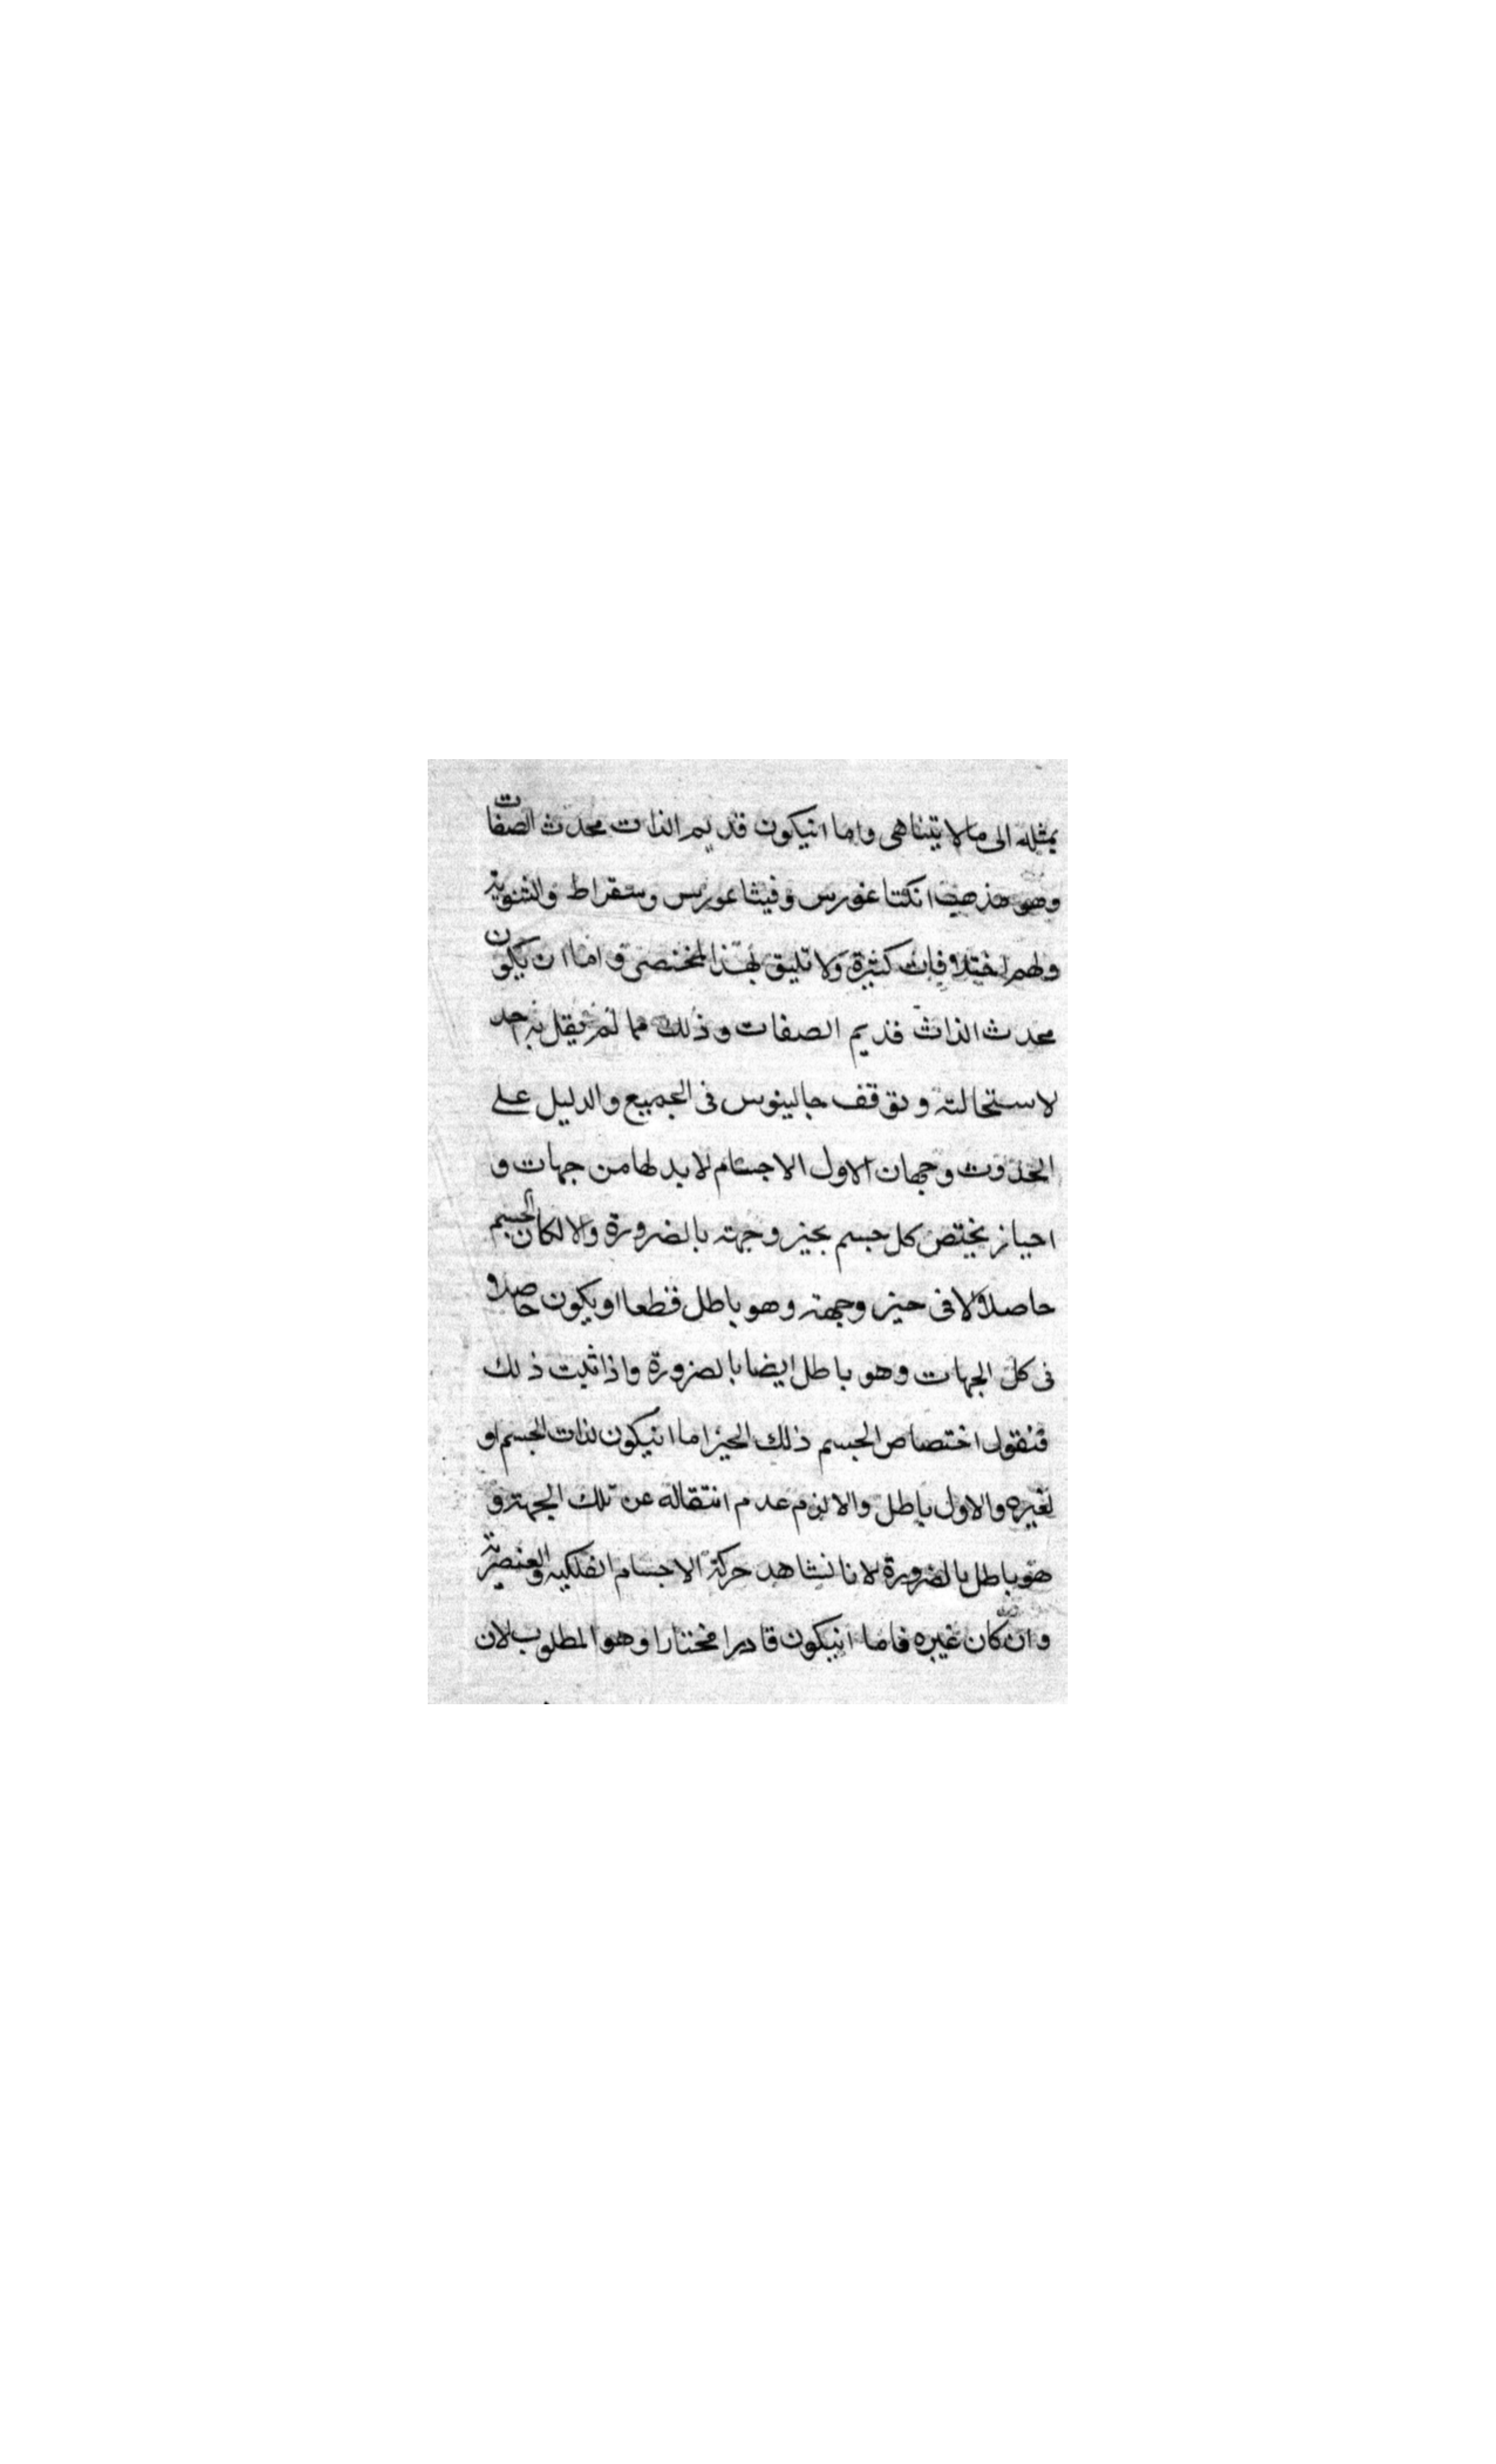 بمثله الى ما لا يتناهى واما انيكون قديم الذات محدث الصفات
وهو مذهب انكتاغورس وفيثاغورس وسقراط والثنوية
ولهم اختلافات كثيرة ولا تليق بهذا المختصر واما ان يكون
محدث الذات قديم الصفات وذلك مما لم يقل به احد
لاستحالته وتوقف جالينوس فى الجميع والدليل على
الحدوث وجهان الاول الاجسام لا بد لها من جهات و
احياز يختص كل جسم بحيز وجهته بالضرورة والا لكان الجسم
حاصلا لا فى حيز وجهته وهو باطل قطعا او يكون حاصلا
فى كل الجهات وهو باطل ايضا بالضرورة واذا ثبت ذلك
فنقول اختصاص الجسم ذلك الحيز اما انيكون لذات الجسم او
لغيره والاول باطل والا لزم عدم انتقاله عن تلك الجهة و
هو باطل بالضرورة لانا نشاهد حركة الاجسام الفلكيه والعنصرية
وان كان غيره فاما انيكون قادرا مختارا وهو المطلوب لان